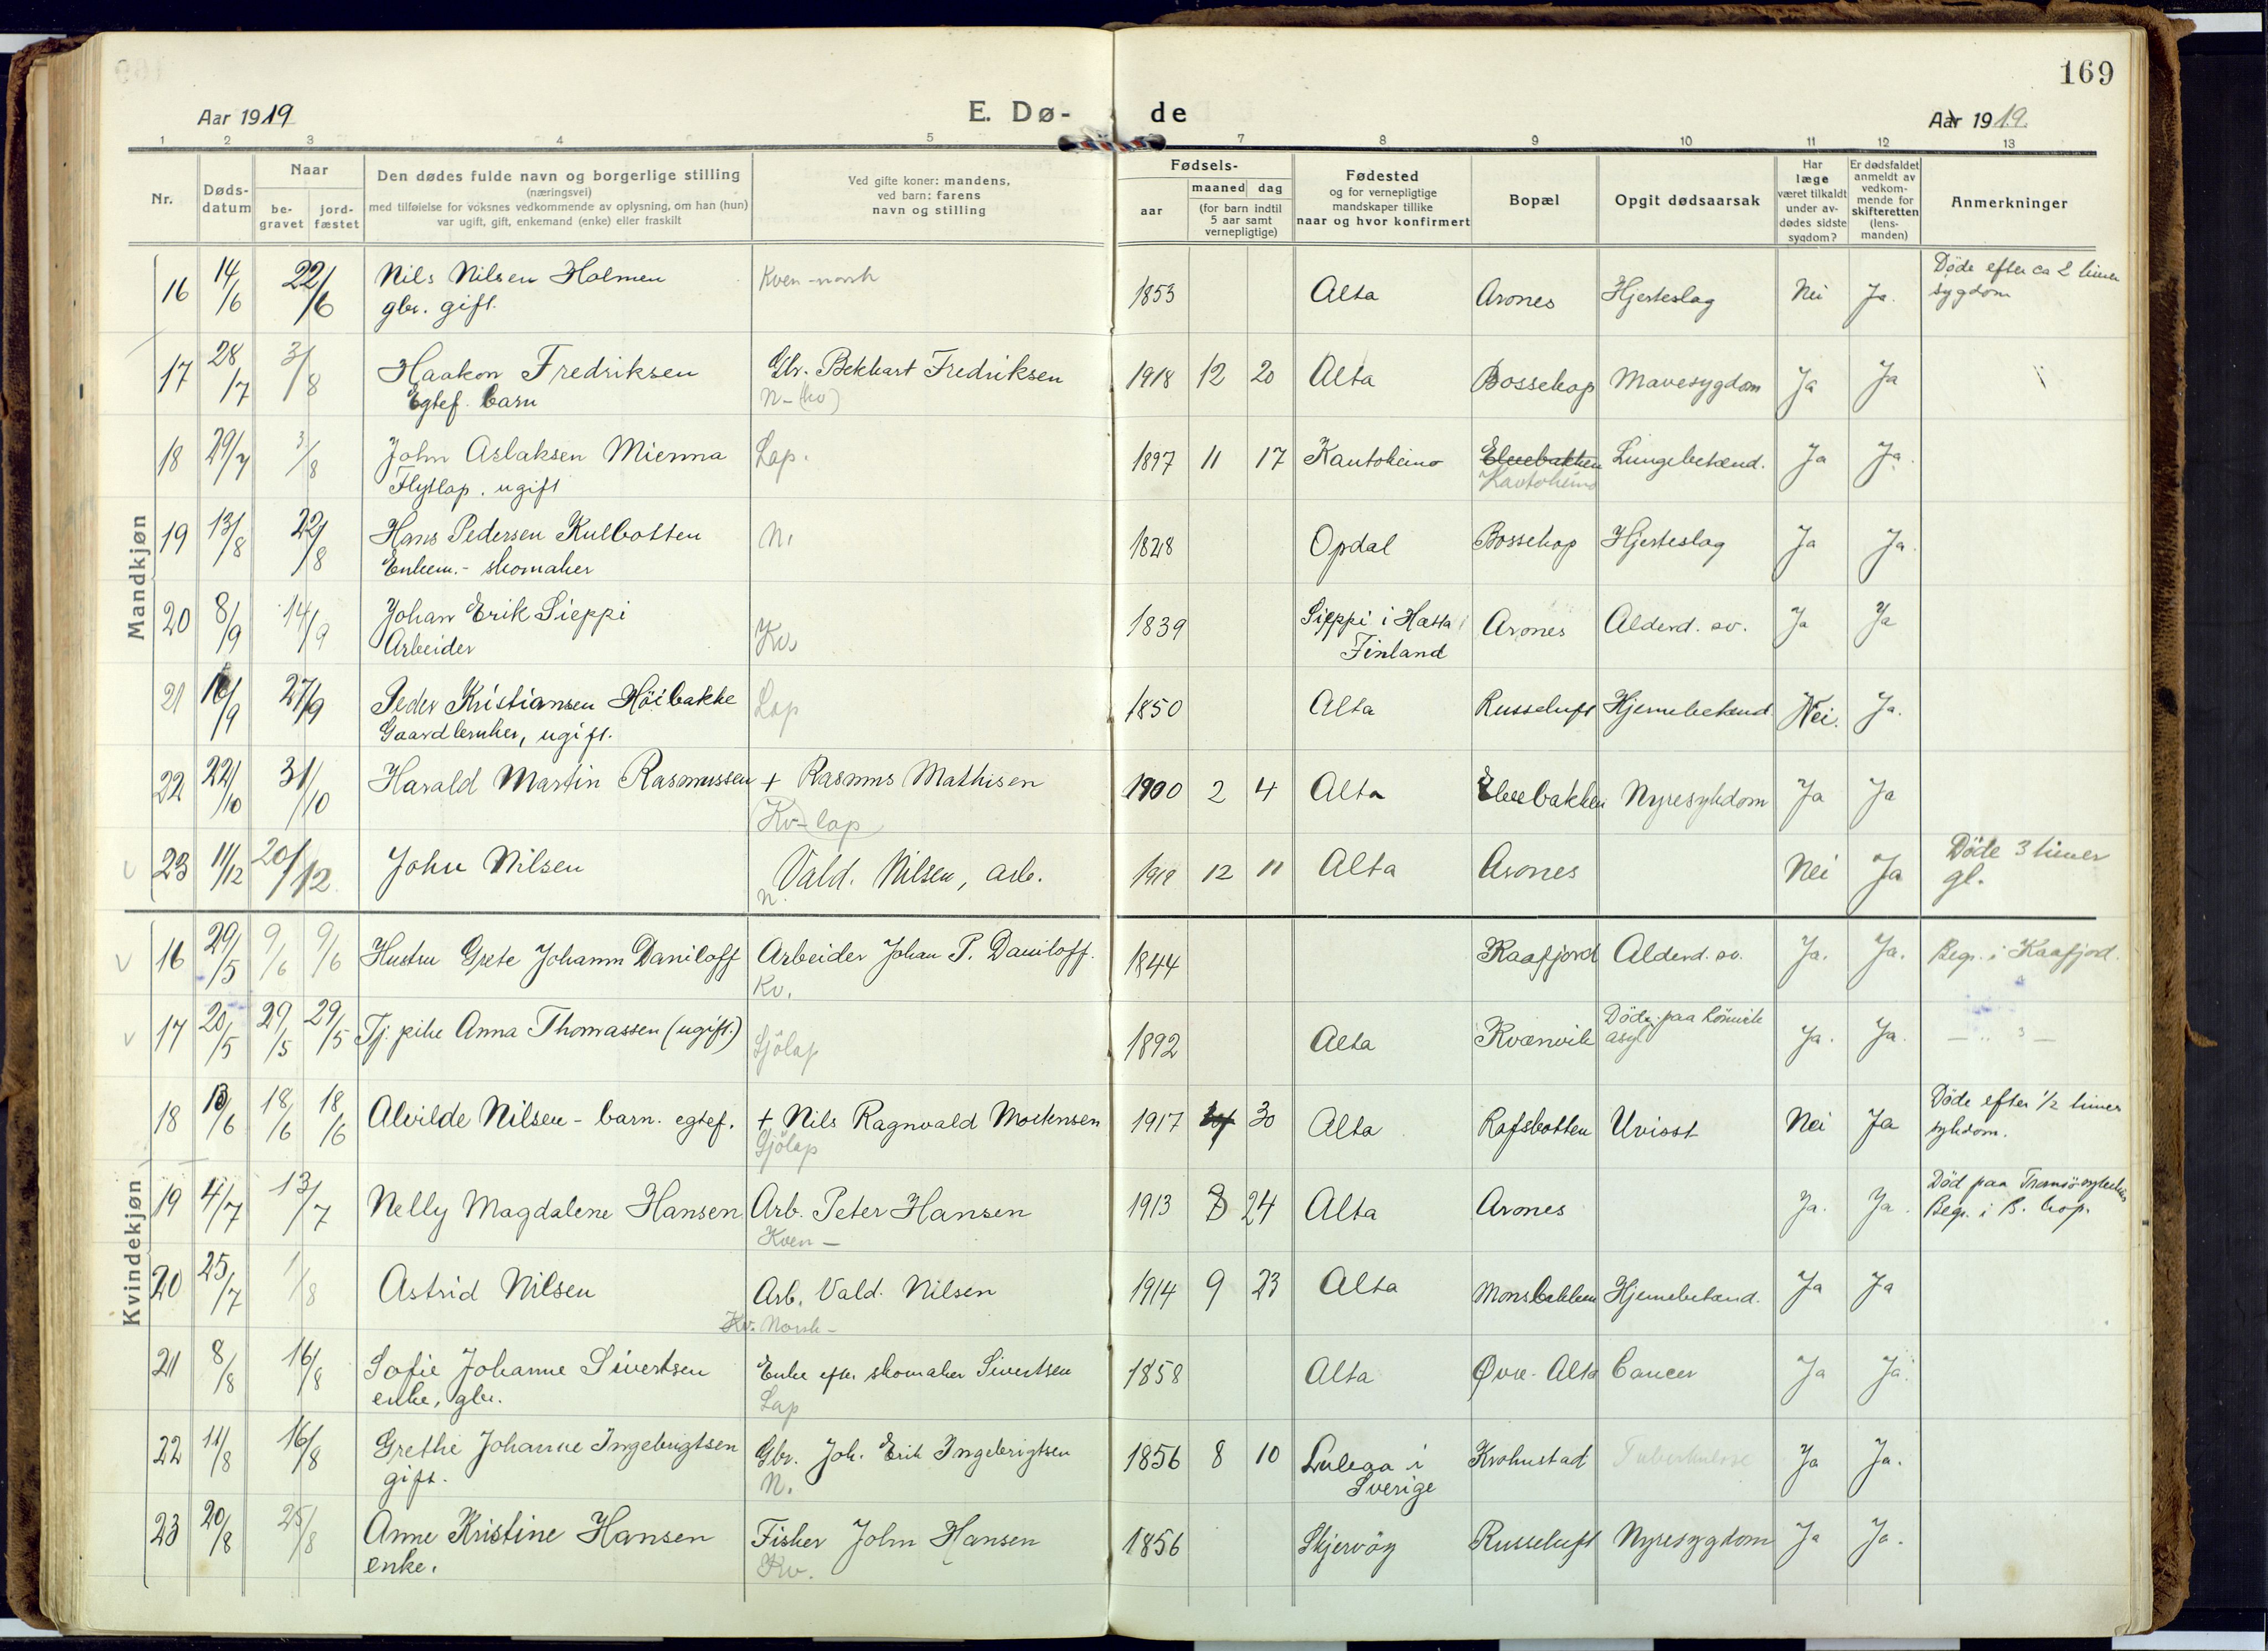 169
Aar 1919
E. Dø-
de
Aar 1919.
1 2 3 4 5 7 8 9 10 11 12 13
Nr.
Døds-
datum
Naar
be-
gravet
jord-
fæstet
Den dødes fulde navn og borgerlige stilling
(næringsvei)
med tilføielse for voksnes vedkommende av oplysning, om han (hun)
var ugift, gift, enkemand (enke) eller fraskilt
Ved gifte koner: mandens,
ved barn: farens
navn og stilling
Fødsels-
aar
maaned dag
(for barn indtil
5 aar samt
vernepligtige)
Fødested
og for vernepligtige
mandskaper tillike
naar og hvor konfirmert
Bopæl
Opgit dødsaarsak
Har
læge
været tilkaldt
under av-
dødes sidste
sygdom?
Er dødsfaldet
anmeldt av
vedkom-
mende for
skifteretten
(lens-
manden)
Anmerkninger
Mandkjøn
16 14/6 22/6 Nils Nilsen Holmen Kven-norsk 1853 Alta Arones Hjerteslag Nei Ja. Døde efter ca 2 timer
gbr. gift. sygdom
17 28/7 3/8 Haakon Fredriksen Gbr. Bekhart Fredriksen 1918 12 20 Alta Bossekop Mavesygdom Ja Ja
Egtef. barn N-(kv)
18 29/7 3/8 John Aslaksen Mienna Lap. 1897 11 17 Kautokeino Elvebakken Lungebetænd. Ja Ja.
Flytlap. ugift Kautokeino
19 13/8 22/8 Hans Pedersen Kulbotten N. 1828 Opdal Bossekop Hjerteslag Ja Ja.
Enkem.- skomaker
20 8/9 14/9 Johan Erik Sieppi Kv. 1839 Sieppi i Hætta Arones Alderd. sv. Ja Ja
Arbeider Finland
21 16/9 27/9 Peder Kristiansen Höibakke Lap 1850 Alta Russeluft Hjernebetænd. Nei. Ja.
Gaardbruker, ugift.
22 22/10 31/10 Harald Martin Rasmussen + Rasmus Mathisen 1900 2 4 Alta Elvebakken Nyresykdom Ja Ja
Kv-lap
23 11/12 20/12 John Nilsen Vald. Nilsen, arb. 1919 12 11 Alta Arones Nei Ja Döde 3 timer
n. gl.
Kvindekjøn
16 29/5 9/6 9/6 Hustru Grete Johanne Daniloff Arbeider Johan P. Daniloff. 1844 Kaafjord Alderd. sv. Ja. Ja. Begr. i Kaafjord.
Kv.
17 20/5 29/5 29/5 Tj. pike Anna Thomassen (ugift.) Sjölap 1892 Alta Kvænvik Døde paa Rönvik Ja. Ja. — „ —
asyl
18 13/6 18/6 18/6 Alvilde Nilsen - barn. egtef. + Nils Ragnvald Mortensen 1917 30 Alta Rafsbotten Uvisst Nei Ja Døde efter 1/2 times
Sjölap sykdom.
19 4/7 13/7 Nelly Magdalene Hansen Arb. Peter Hansen 1913 8 24 Alta Arones Ja. Ja. Død paa Tromsö sykehus
Kven - Begr. i B. hop.
20 25/7 1/8 Astrid Nilsen Arb. Vald. Nilsen 1914 9 23 Alta Monsbakken Hjernebetænd. Ja Ja
Kv. Norsk-
21 8/8 16/8 Sofie Johanne Sivertsen Enke efter skomaker Sivertsen 1858 Alta Øvre-Alta Cancer Ja Ja.
enke, gbr. Lap
22 11/8 16/8 Grethe Johanne Ingebrigtsen Gbr. Joh. Erik Ingebrigtsen 1856 8 10 Luleaa i Krohnstad Tuberkulose Ja Ja.
gift. N. Sverige
23 20/8 25/8 Anne Kristine Hansen Fisker John Hansen 1856 Skjervöy Russeluft Nyresygdom Ja Ja.
enke. Kv.